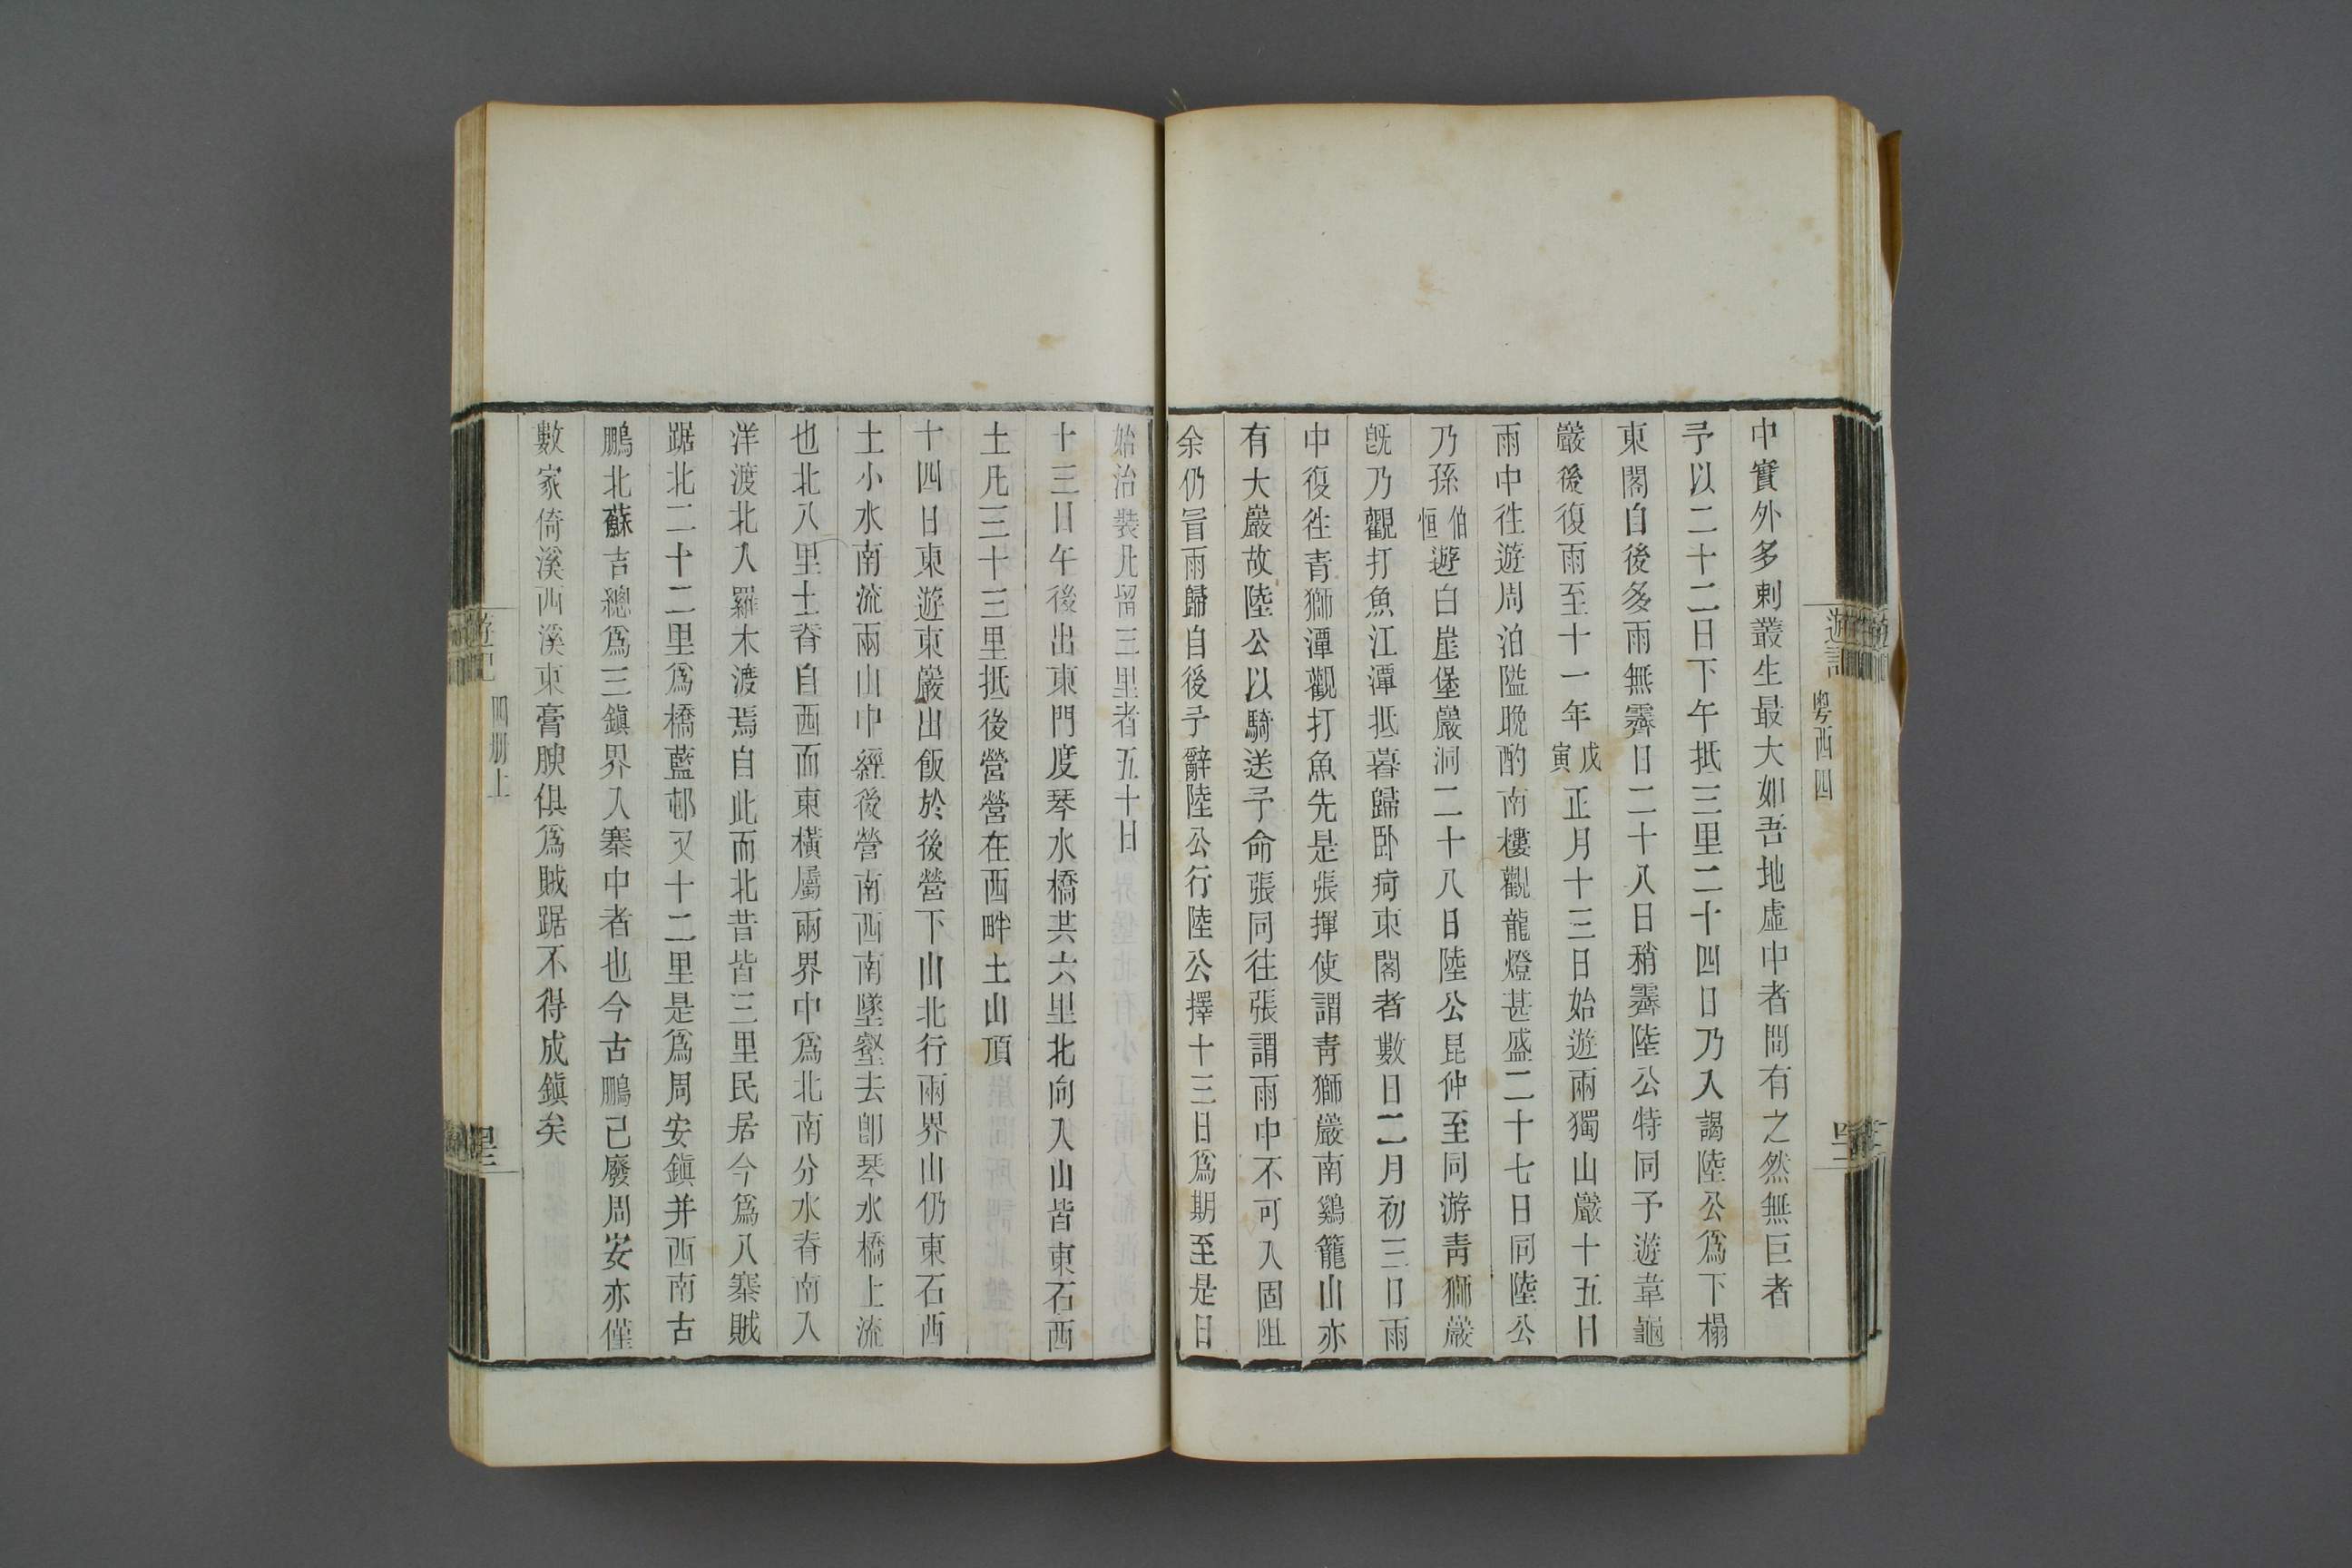 遊記
粵西四
中實外多刺叢生最大如吾地虛中者間有之然無巨者
予以二十二日下午抵三里二十四日乃入謁陸公爲下榻
東閣自後多雨無霽日二十八日稍霽陸公特同予遊韋龜
巖後復雨至十一年戊寅正月十三日始遊兩獨山巖十五日
雨中徃遊周泊隘晚酌南樓觀龍燈甚盛二十七日同陸公
乃孫伯恒遊白崖堡巖洞二十八日陸公昆仲至同游青獅巖
旣乃觀打魚江潭抵暮歸卧疴東閣者數日二月初三日雨
中復徃青獅潭觀打魚先是張揮使謂青獅巖南鷄籠山亦
有大巖故陸公以騎送予命張同往張謂雨中不可入固阻
余仍冒雨歸自後予辭陸公行陸公擇十三日爲期至是日
始治裝凡留三里者五十日
十三日午後出東門度琴水橋共六里北向入山皆東石西
土凡三十三里抵後營營在西畔土山頂
十四日東遊東巖出飯於後營下山北行兩界山仍東石西
土小水南流兩山中經後營南西南墜壑去卽琴水橋上流
也北八里土脊自西而東橫屬兩界中爲北南分水脊南入
洋渡北入羅木渡焉自此而北昔皆三里民居今爲八寨賊
踞北二十二里爲橋藍邨又十二里是爲周安鎭并西南古
鵬北蘇吉總爲三鎭界入寨中者也今古鵬已廢周安亦僅
數家倚溪西溪東膏腴俱爲賊踞不得成鎭矣
遊記
四册上